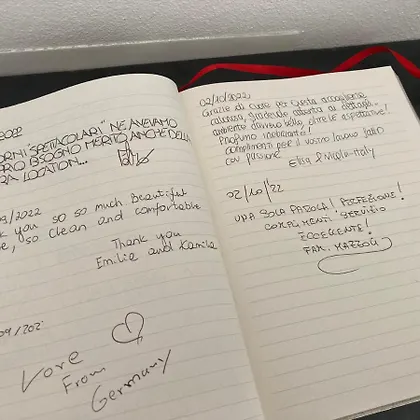 2022
GIORNI "SPETTACOLARI" NE AVEVAMO
BISOGNO MERITO ANCHE DELLA
LOCATION...
/2022
you so so much beautiful
, so clean and comfortable
Thank you
Emilie and Kamila
09/202
Love
From
Germany
02/10/2022
Grazie di cuore per questa accoglienza
calorosa, gradevole attenta ai dettagli
ambiente davvero bello, oltre le aspettative!
Profumo inebriante!
Complimenti per il vostro lavoro fatto
con passione.
02/10/22
UNA SOLA PAROLA! PERFEZIONE!
COMPLIMENTI SERVIZIO
ECCELLENTE!
FAM. MAZZOLI